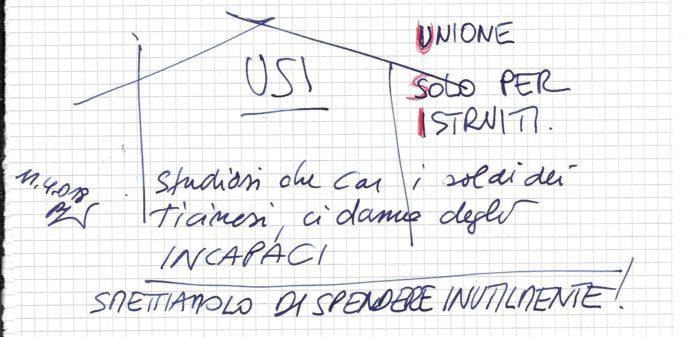 UNIONE
USI
SOLO PER
ISTRUITI.
11.4.018
Studiosi che con i soldi dei
ticinesi, ci danno degli
INCAPACI
SMETTIAMOLO DI SPENDERE INUTILMENTE!